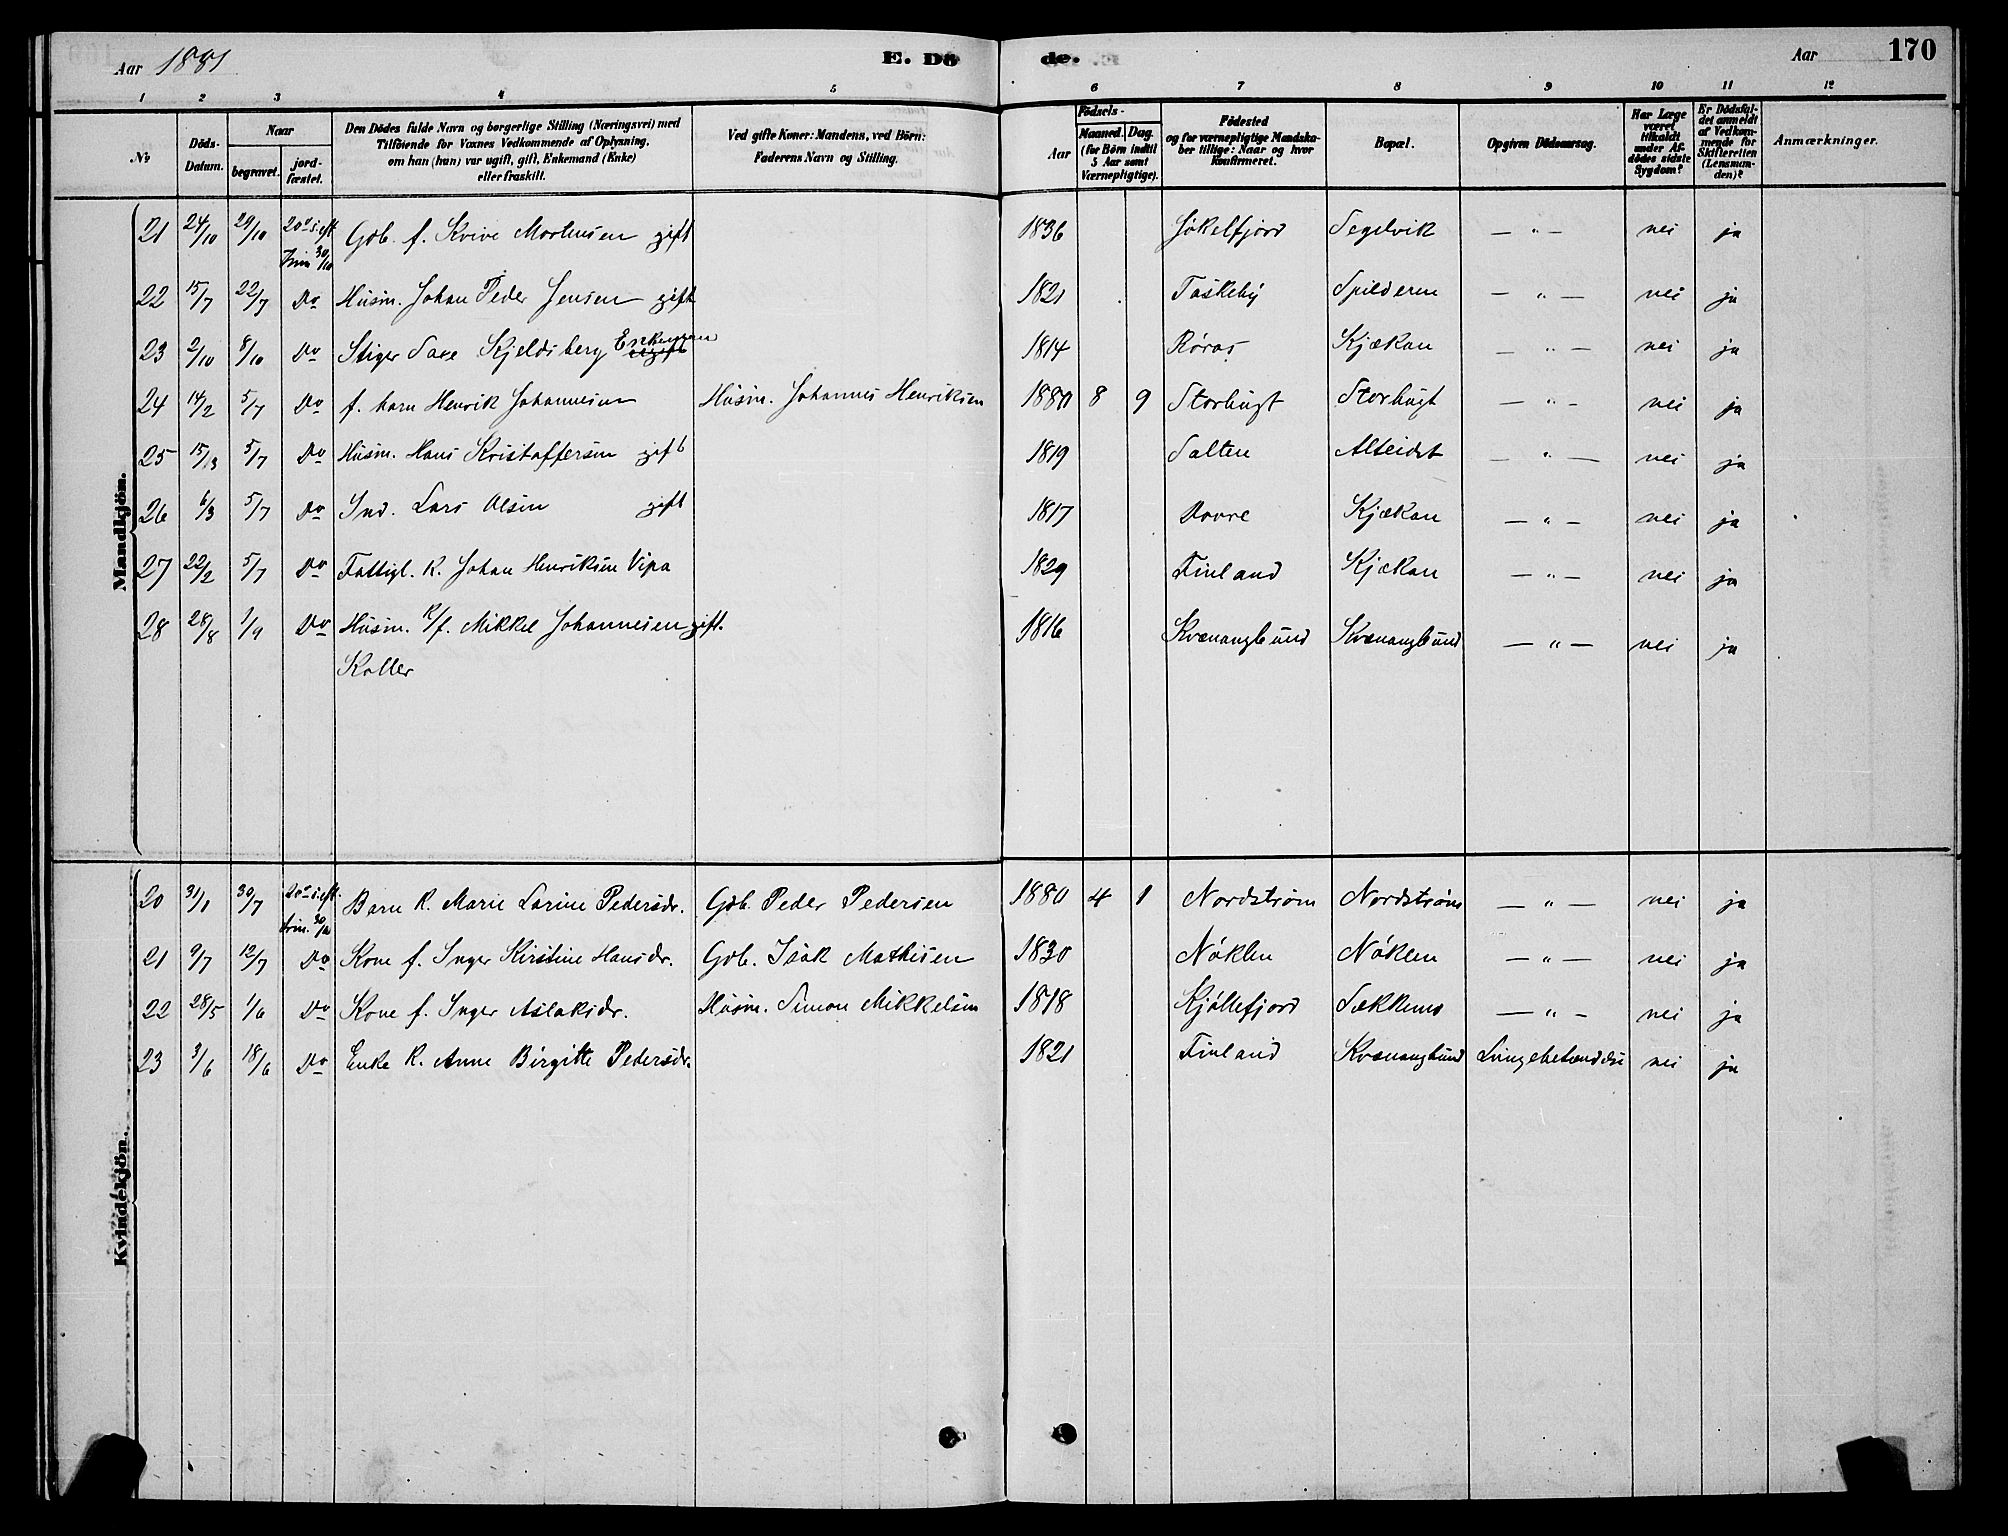 Aar 1881
E. Dö
de.
Aar
170
1 2 3 4 5 6 7 8 9 10 11 12
No
Döds-
Datum.
Naar
begravet.
jord-
fæstet.
Den Dödes fulde Navn og borgerlige Stilling (Næringsvei) med
Tilföiende for Voxnes Vedkommende af Oplysning,
om han (hun) var ugift, gift, Enkemand (Enke)
eller fraskilt.
Ved gifte Koner: Mandens, ved Börn:
Faderens Navn og Stilling.
Födsels-
Aar
Maaned. Dag.
(for Börn indtil
5 Aar samt
Værnepligtige).
Födested
og for værnepligtige Mandska-
ber tillige: Naar og hvor
konfirmeret.
Bopæl.
Opgiven Dödsaarsag.
Har Læge
været
tilkaldt
under Af-
dödes sidste
Sygdom?
Er Dödsfal-
det anmeldt
af Vedkom-
mende for
Skifteretten
(Lensman-
den)?
Anmærkninger.
Mandkjön.
21 24/10 29/10 20de s. eft. Trin 30/10 Gdb. f. Kvive Mortensen gift 1836 Jökelfjord Segelvik — " — nei ja
22 15/7 22/7 Do Husm. Johan Peder Jensen gift 1821 Taskeby Spilderen — " — nei ja
23 2/10 8/10 Do Stiger Saxe Kjeldsberg Enkemann ugift 1814 Røros Kjækan — " — nei ja
24 14/2 5/7 Do f. barn Henrik Johannesen Husm. Johannes Henriksen 1880 8 9 Storbugt Storbugt — " — nei ja
25 15/3 5/7 Do Husm. Hans Kristoffersen gift 1819 Salten Alteidet — " — nei ja
26 6/3 5/7 Do Ind. Lars Olsen gift 1817 Dovre Kjækan — " — nei ja
27 22/2 5/7 Do Fattigl. K. Johan Henriksen Vipa 1829 Finland Kjækan — " — nei ja
28 28/8 1/9 Do Husm. K/f. Mikkel Johannesen gift. 1816 Kvænangbund Kvænangbund — " — nei ja
Koller
Kvindekjön.
20 31/1 30/7 20de s. eft. trin. 30/10 Barn K. Marie Larine Pedersdr. Gdb. Peder Pedersen 1880 4 1 Nordstrøm Nordstrøm — " — nei ja
21 9/7 12/7 Do Kone f. Inger Kirstine Hansdr. Gdb. Isak Mathisen 1830 Nöklen Nöklen — " — nei ja
22 28/5 1/6 Do Kone f. Inger Aslaksdr. Husm. Simon Mikkelsen 1818 Kjöllefjord Sækkemo — " — nei ja
23 3/6 18/6 Do Enke K. Anne Birgitte Pedersdr. 1821 Finland Kvænangbund Lungebetændelse nei ja